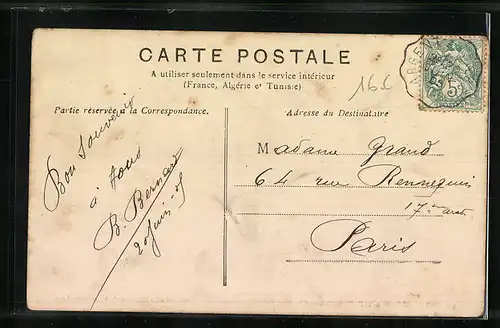 CARTE POSTALE
A utiliser seulement dans le service intérieur
(France, Algérie et Tunisie)
165
Partie réservée à la Correspondance.
Adresse du Destinataire
Bon Souvenir
à tous
B. Bernard
20 juin-05
Madame Grand
64 rue Rennequin
17me arrt
Paris
ARGEN
5c